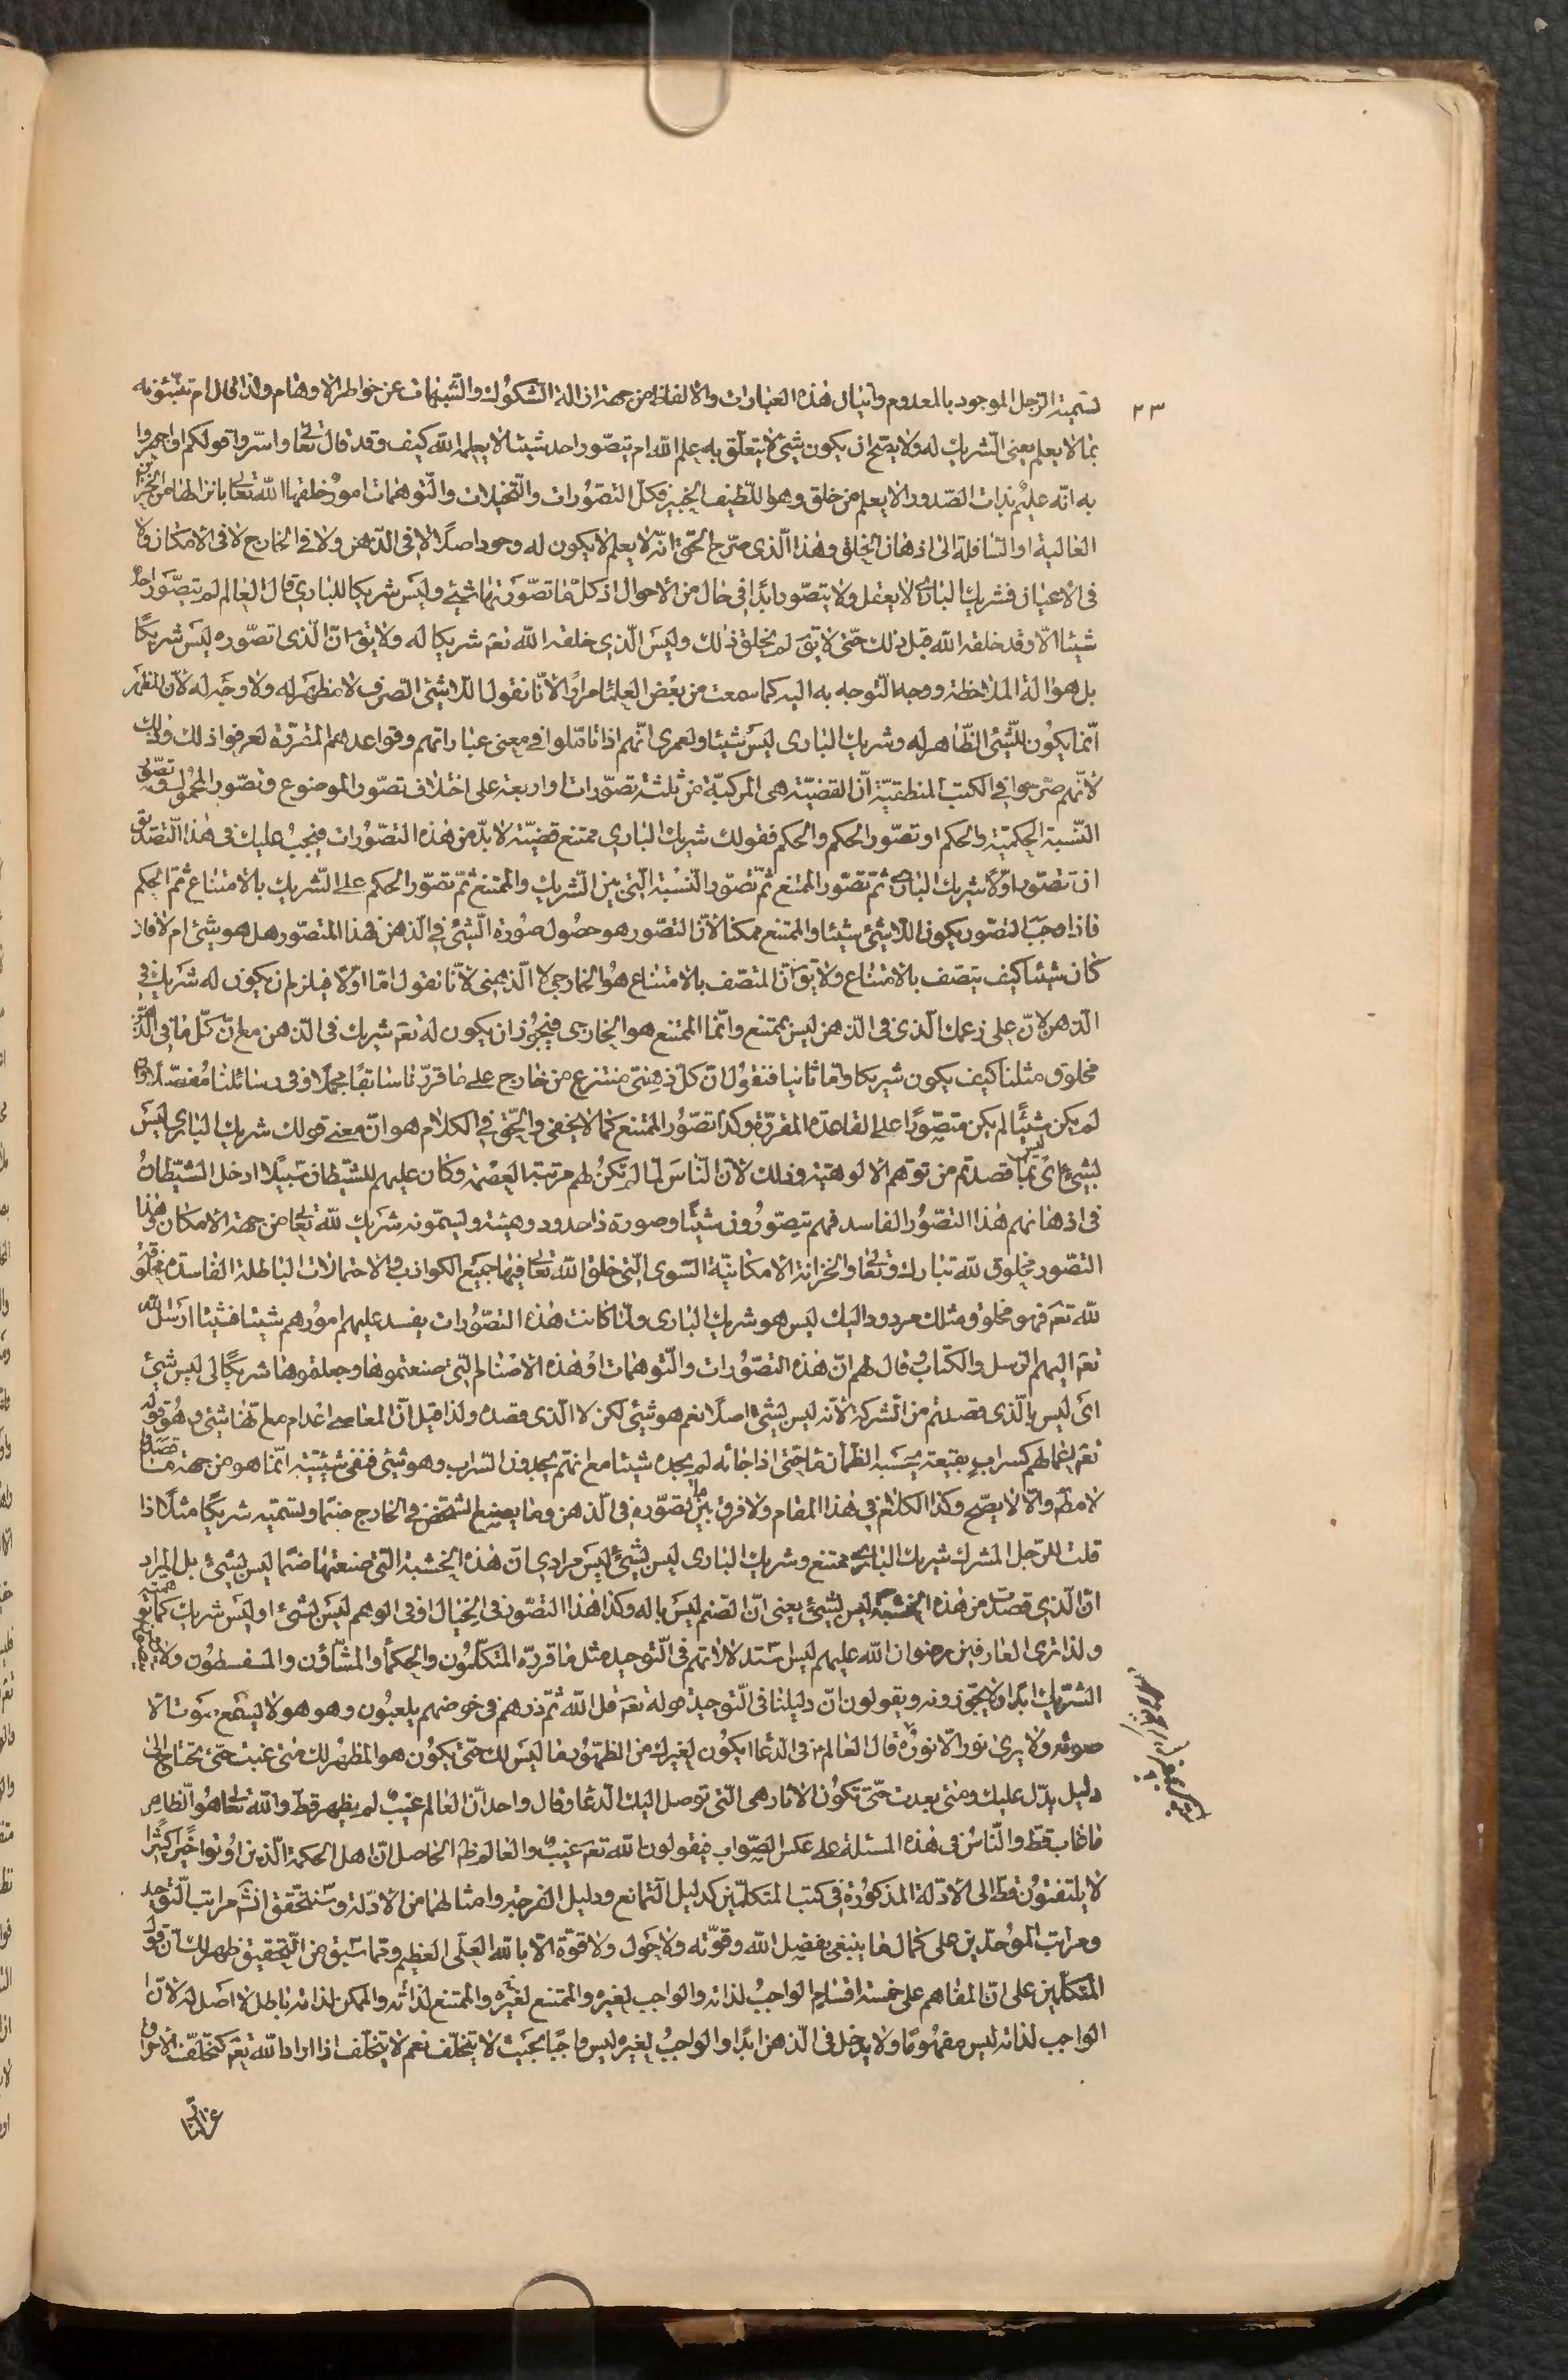 ٢٣
تسمية الرجل الموجود بالمعدوم واتيان هذه العبارات والالفاظ من جهة ازالة الشكوك والشبهات عن خواطر الاوهام ولذا قال ام تنبئونه
بما لا يعلم يعنى الشريك له ولا يصح ان يكون شئ لا يتعلق به علم الله ام يتصور احد شيئا لا يعلمه الله كيف وقد قال تعالى واسروا قولكم او اجهروا
به انه عليم بذات الصدور الا يعلم من خلق وهو اللطيف الخبير فكل التصورات والتخيلات والتوهمات امور خلقها الله تعالى بانزالها من الخزائن
العالية او السافلة الى اذهان الخلق وهذا الذى صرح الحق انه لا يعلم لا يكون له وجود اصلا لا فى الذهن ولا فى الخارج لا فى الامكان ولا
فى الاعيان فشريك البارى لا يعقل ولا يتصور ابدا فى حال من الاحوال اذ كل ما تصورتها شئ وليس شريكا للبارى قال العالم لم يتصور احد
شيئا الا وقد خلقه الله قبل ذلك حتى لا يق لم يخلق ذلك وليس الذى خلقه الله تعم شريكا له ولا يق ان الذى تصوره ليس شريكا
بل هو الة الملاحظة ووجه التوجه به اليه كما سمعت من بعض العلماء مرارا لانا نقول اللاشئ الصرف لا مظهر له ولا وجه له لان المظهر
انما يكون للشئ الظاهر له وشريك البارى ليس شيئا ولعمرى انهم اذا تاملوا فى معنى عباراتهم وقواعدهم المقررة لعرفوا ذلك وذلك
لانهم صرحوا فى الكتب المنطقية ان القضية هى المركبة من ثلثة تصورات او اربعة على اختلاف تصور الموضوع وتصور المحمول وتصور
النسبة الحكمية والحكم او تصور الحكم والحكم فقولك شريك البارى ممتنع قضية لا بد من هذه التصورات فيجب عليك فى هذا التصديق
ان تتصور اولا شريك البارى ثم تصور الممتنع ثم تصور النسبة التى بين الشريك والممتنع ثم تصور الحكم على الشريك بالامتناع ثم الحكم
فاذا وجب التصور يكون اللاشئ شيئا والممتنع ممكنا لان التصور هو حصول صورة الشئ فى الذهن فهذا المتصور هل هو شئ ام لا فان
كان شيئا كيف يتصف بالامتناع ولا يق ان المتصف بالامتناع هو الخارجى لا الذهنى لانا نقول اما اولا فيلزم ان يكون له شريك فى
الذهن لان على زعمك الذى فى الذهن ليس بممتنع وانما الممتنع هو الخارجى فيجوز ان يكون له تعم شريك فى الذهن مع ان كل ما فى الذهن
مخلوق مثلنا كيف يكون شريكا واما ثانيا فنقول ان كل ذهنى منتزع من خارج على ما قررنا سابقا مجملا وفى رسائلنا مفصلا واذا
لم يكن شيئا لم يكن متصورا على القاعدة المقررة وكذا تصور الممتنع كما لا يخفى والحق فى الكلام هو ان معنى قولك شريك البارى ليس
بشئ اى ليس بما قصدتم من توهم الالوهية وذلك لان الناس لما لم تكن لهم مرتبة العصمة وكان عليهم للشيطان سبيلا ادخل الشيطان
فى اذهانهم هذا التصور الفاسد فهم يتصورون شيئا وصورة ذا حدود وهيئة ويسمونه شريك لله تعالى من جهة الامكان وهذا
التصور مخلوق لله تبارك وتعالى والخزانة الامكانية السوى التى خلق الله تعالى فيها جميع الكواذب والاحتمالات الباطلة الفاسدة مخلوقة
لله تعم فهو مخلوق ومثلك مردود اليك ليس هو شريك البارى ولما كانت هذه التصورات يفسد عليهم امورهم شيئا فشيئا ارسل الله
تعم اليهم الرسل والكتاب قال لهم ان هذه التصورات والتوهمات او هذه الاصنام التى صنعتموها وجعلتموها شريكا لى ليس شئ
اى ليس بالذى قصدتم من الشركة لانه ليس بشئ اصلا نعم هو شئ لكن لا الذى قصده ولذا قيل ان المعاصى اعدام مع انها شئ وهو قوله
تعم اعمالهم كسراب بقيعة يحسبه الظمان ماء حتى اذا جائه لم يجده شيئا مع انهم يجدون السراب وهو شئ فنفى شيئيته انما هو من جهة ما قصدوا
لا مطم والا لا يصح وكذا الكلام فى هذا المقام ولا فرق بين ما تصوره فى الذهن وما يصنع الشخص فى الخارج صنما وتسميه شريكا مثلا اذا
قلت للرجل المشرك شريك البارى ممتنع وشريك البارى ليس بشئ ليس مرادى ان هذه الخشبة التى صنعتها صنما ليس بشئ بل المراد
ان الذى قصدت من هذه الخشبة ليس بشئ يعنى ان الصنم ليس باله وكذا هذا التصور فى الخيال او فى الوهم ليس بشئ او ليس شريك كما
ولذا ترى العارفين رضوان الله عليهم ليس استدلالاتهم فى التوحيد مثل ما قرره المتكلمون والحكماء والمشاؤن والمسفسطون ولا
الشريك ابدا ولا يجوزونه ويقولون ان دليلنا فى التوحيد قوله تعم قل الله ثم ذرهم فى خوضهم يلعبون وهو هو لا يسمع صوت الا
صوته ولا يرى نور الا نوره قال العالم فى الدعا ايكون لغيرك من الظهور ما ليس لك حتى يكون هو المظهر لك متى غبت حتى تحتاج الى
دليل يدل عليك ومتى بعدت حتى تكون الاثار هى التى توصل اليك الدعا وقال واحد ان العالم غيب لم يظهر قط والله تعالى هو الظاهر
ما غاب قط والناس فى هذه المسئلة على عكس الصواب فيقولون الله تعم غيب والعالم ظم الحاصل ان اهل الحكمة الذين اوتوا خيرا كثيرا
لا يلتفتون قط الى الادلة المذكورة فى كتب المتكلمين كدليل التمانع ودليل الفرجة وامثالهما من الادلة وسنحقق انشم مراتب التوحيد
ومراتب الموحدين على كمال ما ينبغى بفضل الله وقوته ولا حول ولا قوة الا بالله العلى العظيم ومما سبق من التحقيق ظهر لك ان قول
المتكلمين على ان المفاهم على خمسة اقسام الواجب لذاته والواجب لغيره والممتنع لغيره والممتنع لذاته والممكن لذاته باطل لا اصل له لان
الواجب لذاته ليس مفهوما ولا يدخل فى الذهن ابدا والواجب لغيره ليس واجبا بحيث لا يتخلف نعم لا يتخلف اذا اراد الله تعم كتخلف الاحراق
عن النار